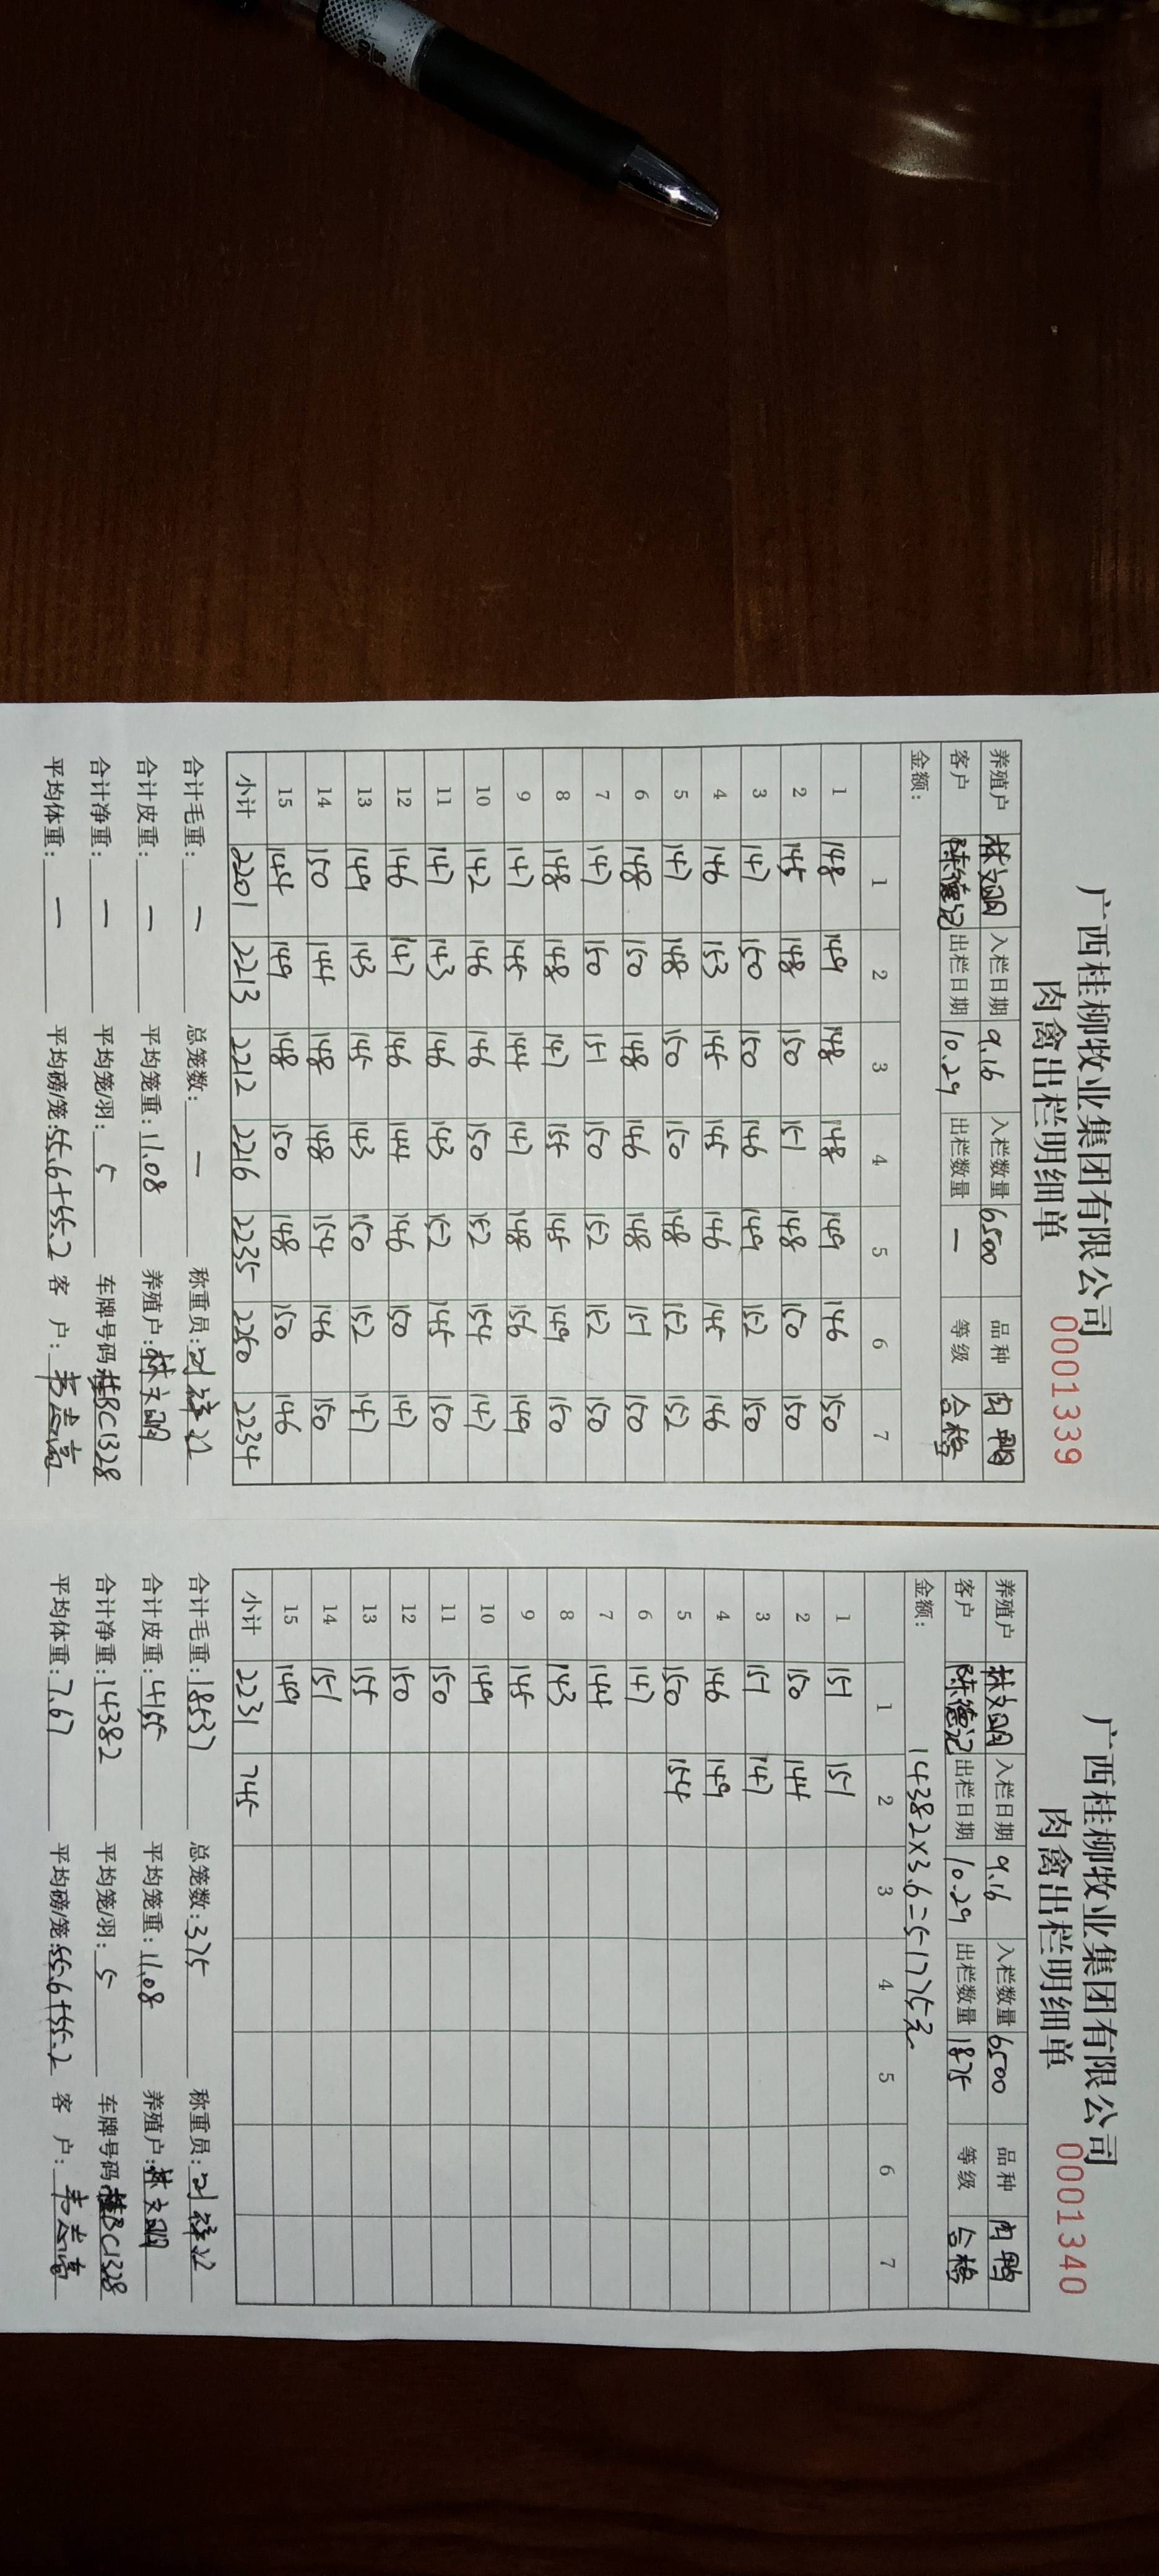 广西桂柳牧业集团有限公司
肉禽出栏明细单 0001339
养殖户 林文明 入栏日期 9.16 入栏数量 6500 品种 肉鸭
客户 陈德记 出栏日期 10.29 出栏数量 一 等级 合格
金额：
1 2 3 4 5 6 7
1 148 149 148 148 149 146 150
2 145 148 150 151 148 150 150
3 147 150 150 146 149 152 150
4 146 153 145 145 146 145 146
5 147 148 150 150 148 152 152
6 148 150 148 146 148 151 150
7 147 150 151 150 152 152 150
8 148 148 147 155 145 149 150
9 147 145 144 147 148 156 149
10 142 146 146 150 152 154 147
11 147 143 146 143 152 145 150
12 146 147 146 144 146 150 147
13 149 143 145 143 150 152 147
14 150 144 148 148 154 146 150
15 144 149 148 150 148 150 146
小计 2201 2213 2212 2216 2235 2250 2234
合计毛重：一 总笼数：一 称重员：
合计皮重：一 平均笼重：11.08 养殖户：林文明
合计净重：一 平均笼/羽：5 车牌号码：桂BC1328
平均体重：一 平均磅/笼：55.6+55.2 客 户：
广西桂柳牧业集团有限公司
肉禽出栏明细单 0001340
养殖户 林文明 入栏日期 9.16 入栏数量 6500 品种 肉鸭
客户 陈德记 出栏日期 10.29 出栏数量 1875 等级 合格
金额： 14382×3.6=51775元
1 2 3 4 5 6 7
1 151 151
2 150 144
3 151 147
4 146 149
5 150 154
6 147
7 144
8 143
9 145
10 149
11 150
12 150
13 155
14 151
15 149
小计 2231 745
合计毛重：18537 总笼数：375 称重员：
合计皮重：4155 平均笼重：11.08 养殖户：林文明
合计净重：14382 平均笼/羽：5 车牌号码：桂BC1328
平均体重：7.67 平均磅/笼：55.6+55.2 客 户：